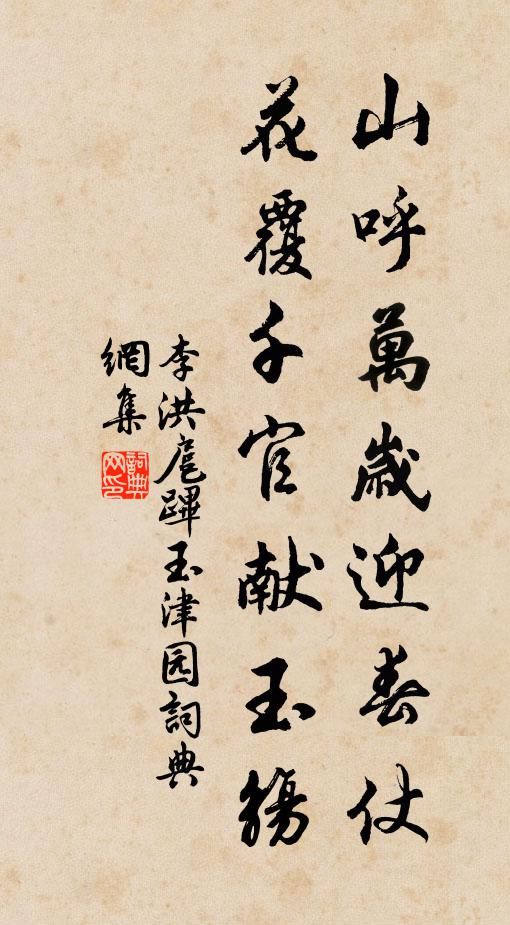 山呼萬歲迎春仗
花覆千官献玉觴
李洪扈蹕玉津园詞典
網集
詞典网印